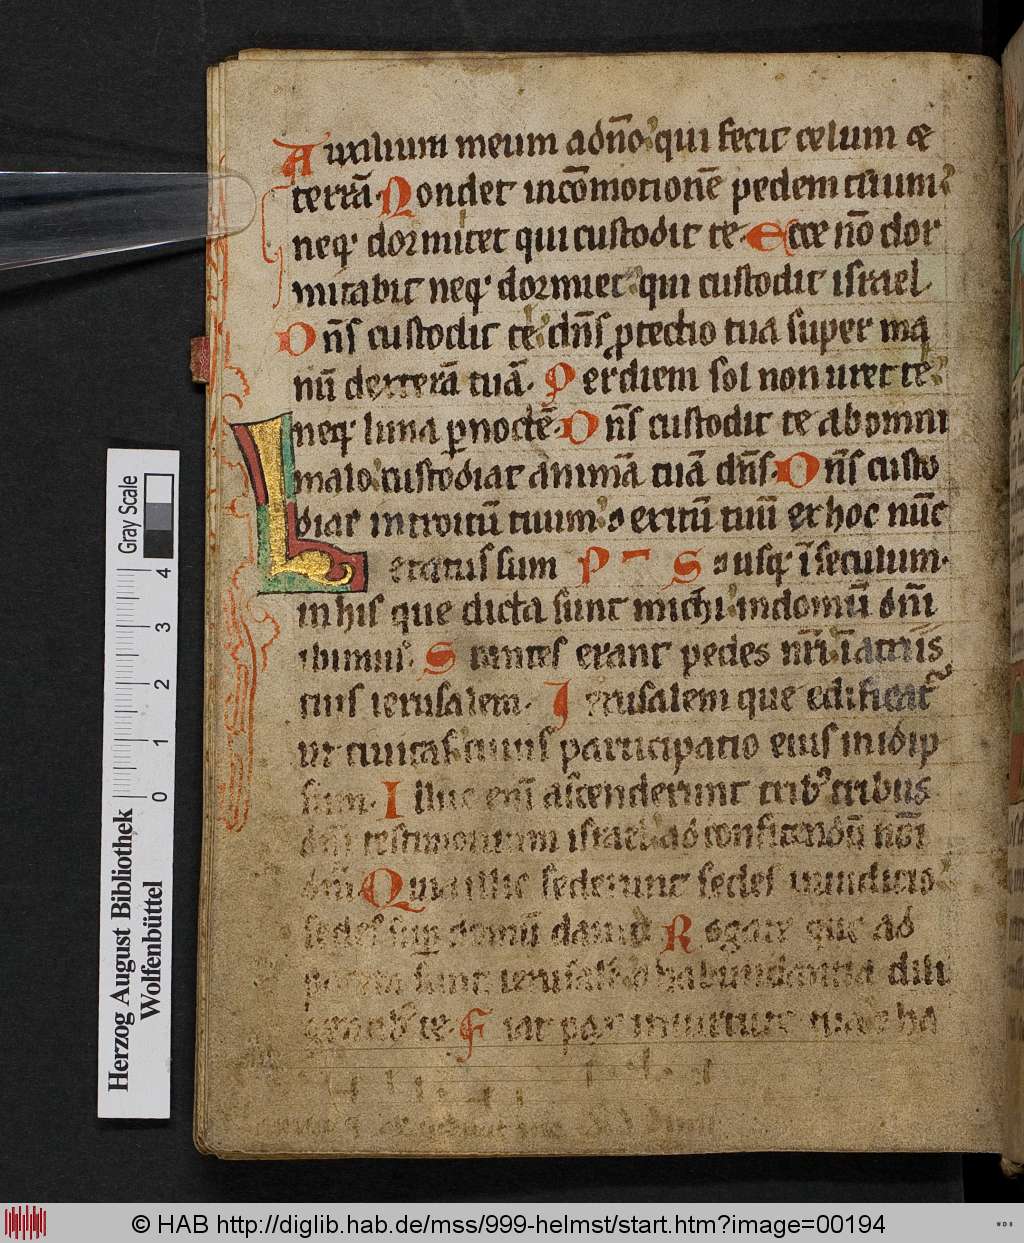 Auxilium meum adn̄o qui fecit celum ⁊
terrā. Non det incōmotionē pedem tuum
neq dormitet qui custodit te. Ecce nō dor
mitabit neq dormiet qui custodit israel.
Dn̄s custodit te dn̄s ꝓtectio tua super ma
nū dexterā tuā. Per diem sol non uret te
neq luna ꝑ noctē. Dn̄s custodit te ab omni
malo custodiat animā tuā dn̄s. Dn̄s custo
diat introitū tuum ⁊ exitū tuū ex hoc nūc
Letatus sum Ps ⁊ usq ī seculum.
in his que dicta sunt michi in domū dn̄i
ibimus. Stantes erant pedes nr̄i ī atriis
tuis ierusalem. Ierusalem que edificat᷑
ut ciuitas cuius participatio eius in idip
sum. Illuc eni ascenderunt trib tribus
dn̄i testimonium israel ad confitendū nōi
dn̄i Quia illic sederunt sedes in iudicio
sedes sup domū dauid Rogate que ad
pacem sunt ierusalē ⁊ habundantia dili
gentib te. Fiat pax in uirtute tua ⁊ ha
Herzog August Bibliothek
Wolfenbüttel
0 1 2 3 4
Gray Scale
© HAB http://diglib.hab.de/mss/999-helmst/start.htm?image=00194
WDB